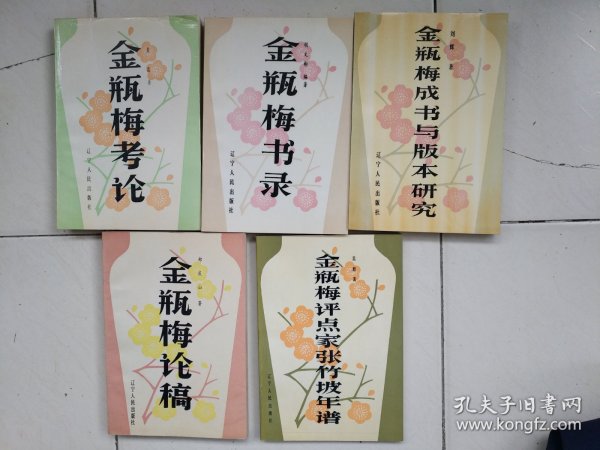 金瓶梅考论
辽宁人民出版社
金瓶梅书录
胡文彬 编著
辽宁人民出版社
金瓶梅成书与版本研究
刘辉 著
辽宁人民出版社
金瓶梅论稿
郑庆山 著
辽宁人民出版社
金瓶梅评点家张竹坡年谱
辽宁人民出版社
孔夫子旧书网
www.kongfz.com